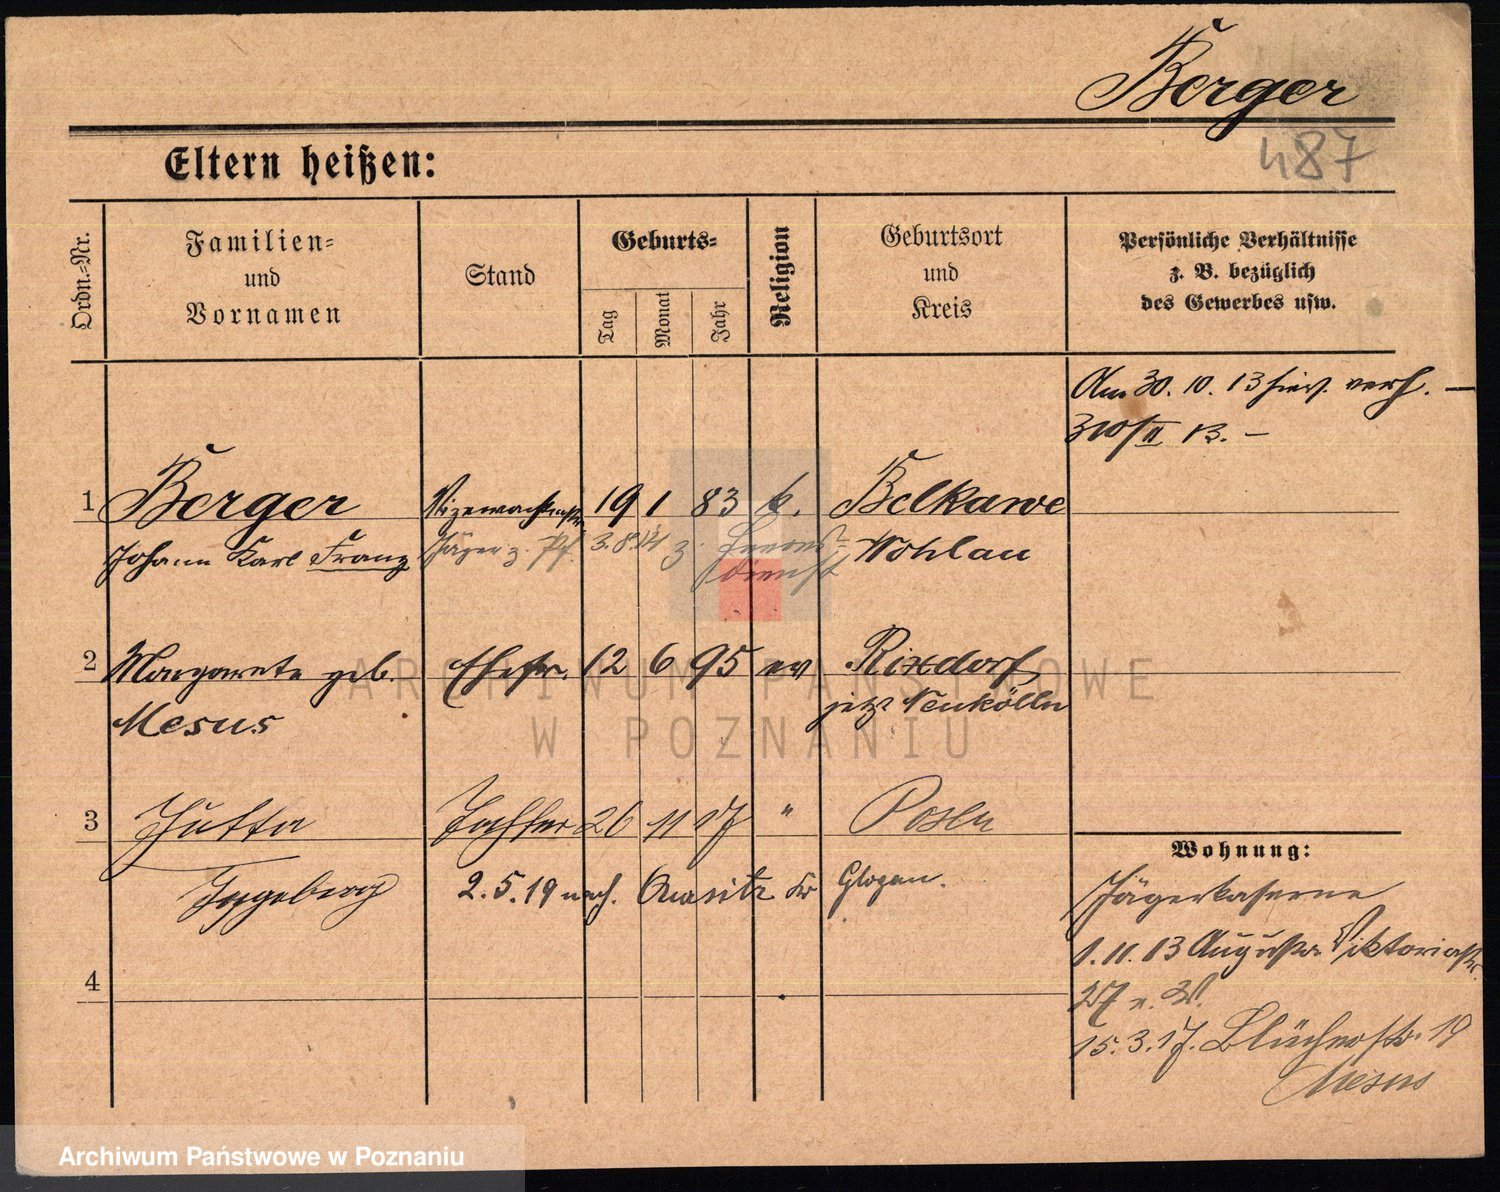 Berger
487
Eltern heißen:
Ordn.-Nr.
Familien-
und
Vornamen
Stand
Geburts-
Tag
Monat
Jahr
Religion
Geburtsort
und
Kreis
Persönliche Verhältnisse
z. B. bezüglich
des Gewerbes usw.
Am 30. 10. 13 hier verh. —
310/II 13. —
1 Berger Vizewachtmstr. 19 1 83 k. Belkawe
Johann Karl Franz Jäger z. Pf. 3.8.14 z. Heeres- Wohlau
dienst
2 Margarete geb. Ehefr. 12 6 95 ev Rixdorf
Mesus jetzt Neukölln
3 Jutta Tochter 26 11 17 " Posen
Ingeborg 2.5.19 nach Kr Glogau.
4
Wohnung:
Jägerkaserne
1.11.13 Augusta Viktoriastr.
27
15.3.17. Blücherstr. 19
Mesus
ARCHIWUM PAŃSTWOWE
W POZNANIU
Archiwum Państwowe w Poznaniu